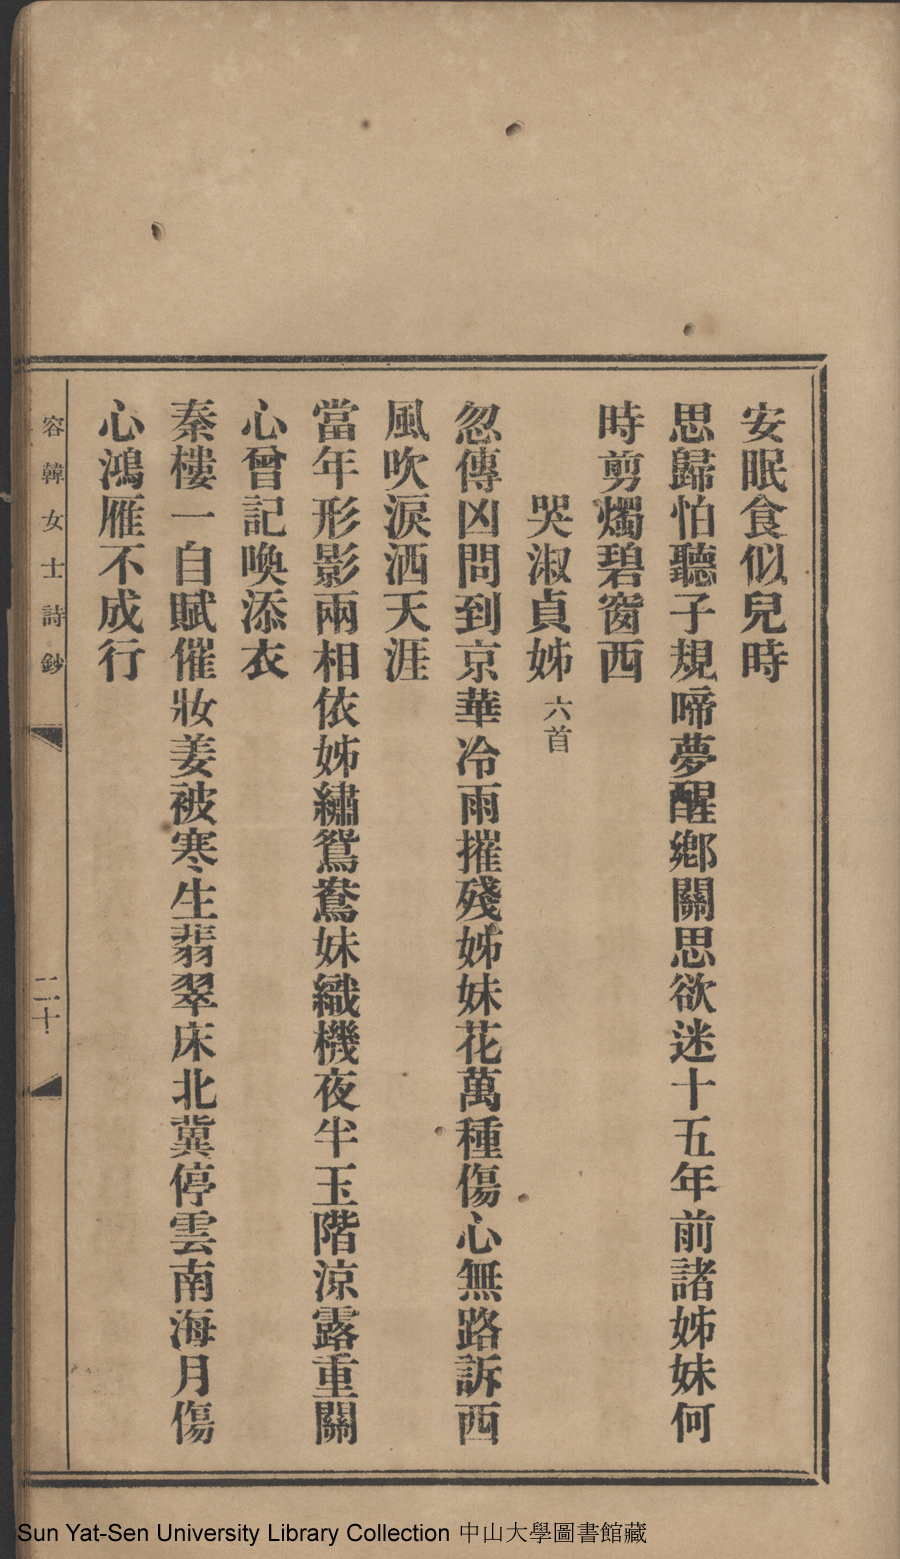 安眠食似兒時
思歸怕聽子規啼夢醒鄉關思欲迷十五年前諸姊妹何
時剪燭碧窗西
哭淑貞姊 六首
忽傳凶問到京華冷雨摧殘姊妹花萬種傷心無路訴西
風吹淚洒天涯
當年形影兩相依姊繡鴛鴦妹織機夜半玉階涼露重關
心曾記喚添衣
秦樓一自賦催妝姜被寒生翡翠床北冀停雲南海月傷
心鴻雁不成行
容韓女士詩鈔
二十
Sun Yat-Sen University Library Collection 中山大學圖書館藏